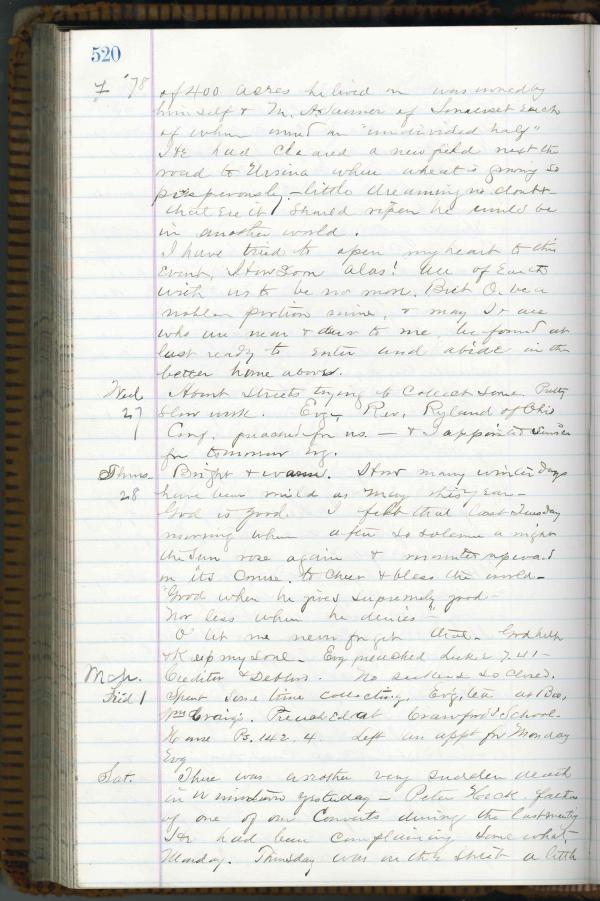 520
F '78 of 400 acres he lived on was owned by
himself & M. A. Sanner of Somerset each
of whom owned an "undivided half"
He had cleared a new field next the
road to Ursina where wheat is growing so
prosperously, - little dreaming no doubt
that ere it should ripen he would be
in another world.
I have tried to open my heart to this
event. How soon alas! all of Earth
with us to be no more. But O, be a
nobler portion mine, & may I & all
who are near & dear to me be found at
last ready to enter and abide in the
better home above.
Wed About streets trying to collect some. Pretty
27 slow work. Evg, Rev. Ryland of Ohio
Conf. preached for us - & I appointed service
for tomorrow Evg.
Thurs. Bright & warm. How many winter days
28 have been mild as May this year -
God is good. I felt that last Tuesday
morning when after so solemn a night
the Sun rose again & mounted upward
on its course, to cheer & bless the world -
"Good when he gives supremely good -
Nor less when he denies -"
O let me never forget that. God help
& Keep my soul. Evg preached Luke 7.41 -
Mch. Creditor & Debtors. No seekers so closed.
Frid 1 Spent some time collecting, Evg, tea at Bro,
Wm Craig's. Preached at Crawford's School
House Ps. 142.4. Left an appt for Monday
Evg
Sat. There was another very sudden death
in yesterday - Peter Hock father
of one of our Converts during the last meeting
He had been complaining some what,
Monday. Thursday was on the street a little